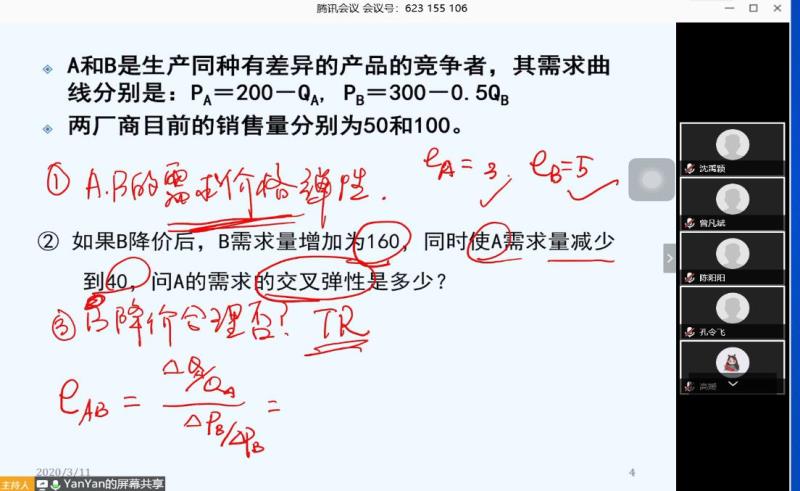 腾讯会议 会议号：623 155 106
A和B是生产同种有差异的产品的竞争者，其需求曲
线分别是：PA＝200－QA，PB＝300－0.5QB
两厂商目前的销售量分别为50和100。
① A.B的需求价格弹性. eA=3. eB=5
② 如果B降价后，B需求量增加为160，同时使A需求量减少
到40，问A的需求的交叉弹性是多少？
③ B降价合理否? TR
eAB = ΔQA/QA / ΔPB/ΔPB =
2020/3/11
4
主持人 YanYan的屏幕共享
沈禹颖
曾凡斌
陈阳阳
孔令飞